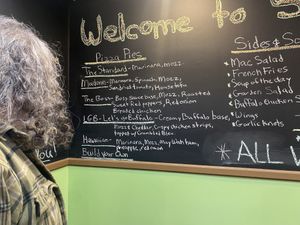 Welcome to S
Pizza Pies
The Standard - Marinara, mozz
Marinara, Spinach, Mozz,
Sundried tomato, House
The Boss - Boss sauce base, Mozz, Roasted
Sweet Red peppers, Red onion
Breaded chicken
LGB - Let's go Buffalo - Creamy Buffalo base,
Mozz & Cheddar, Crispy chicken strips,
topped w/ Crumbled Bleu
Hawaiian - Marinara, Mozz, May Wish ham,
Pineapple, red onion
Build your Own
Sides & S
* Mac Salad
* French Fries
* Soup of the
Garden Salad
* Buffalo chicken
* Wings
* Garlic knots
* ALL
You